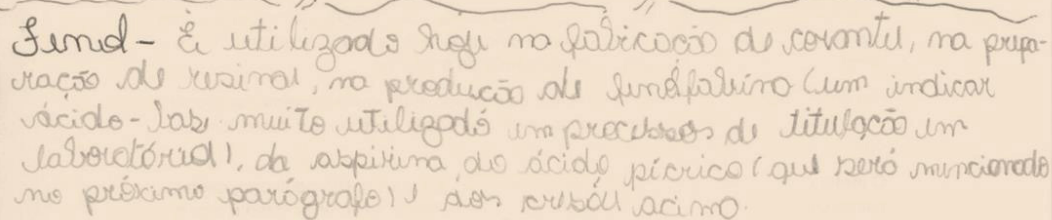 Fenol - É utilizado hoje na fabricação de corantes, na prepa-
ração de resinas, na produção de fenolftalina (um indicar
ácido-base muito utilizado em processos de titulação em
laboratórios), da aspirina, do ácido pícrico (que será mencionado
no próximo parágrafo) dos acima.